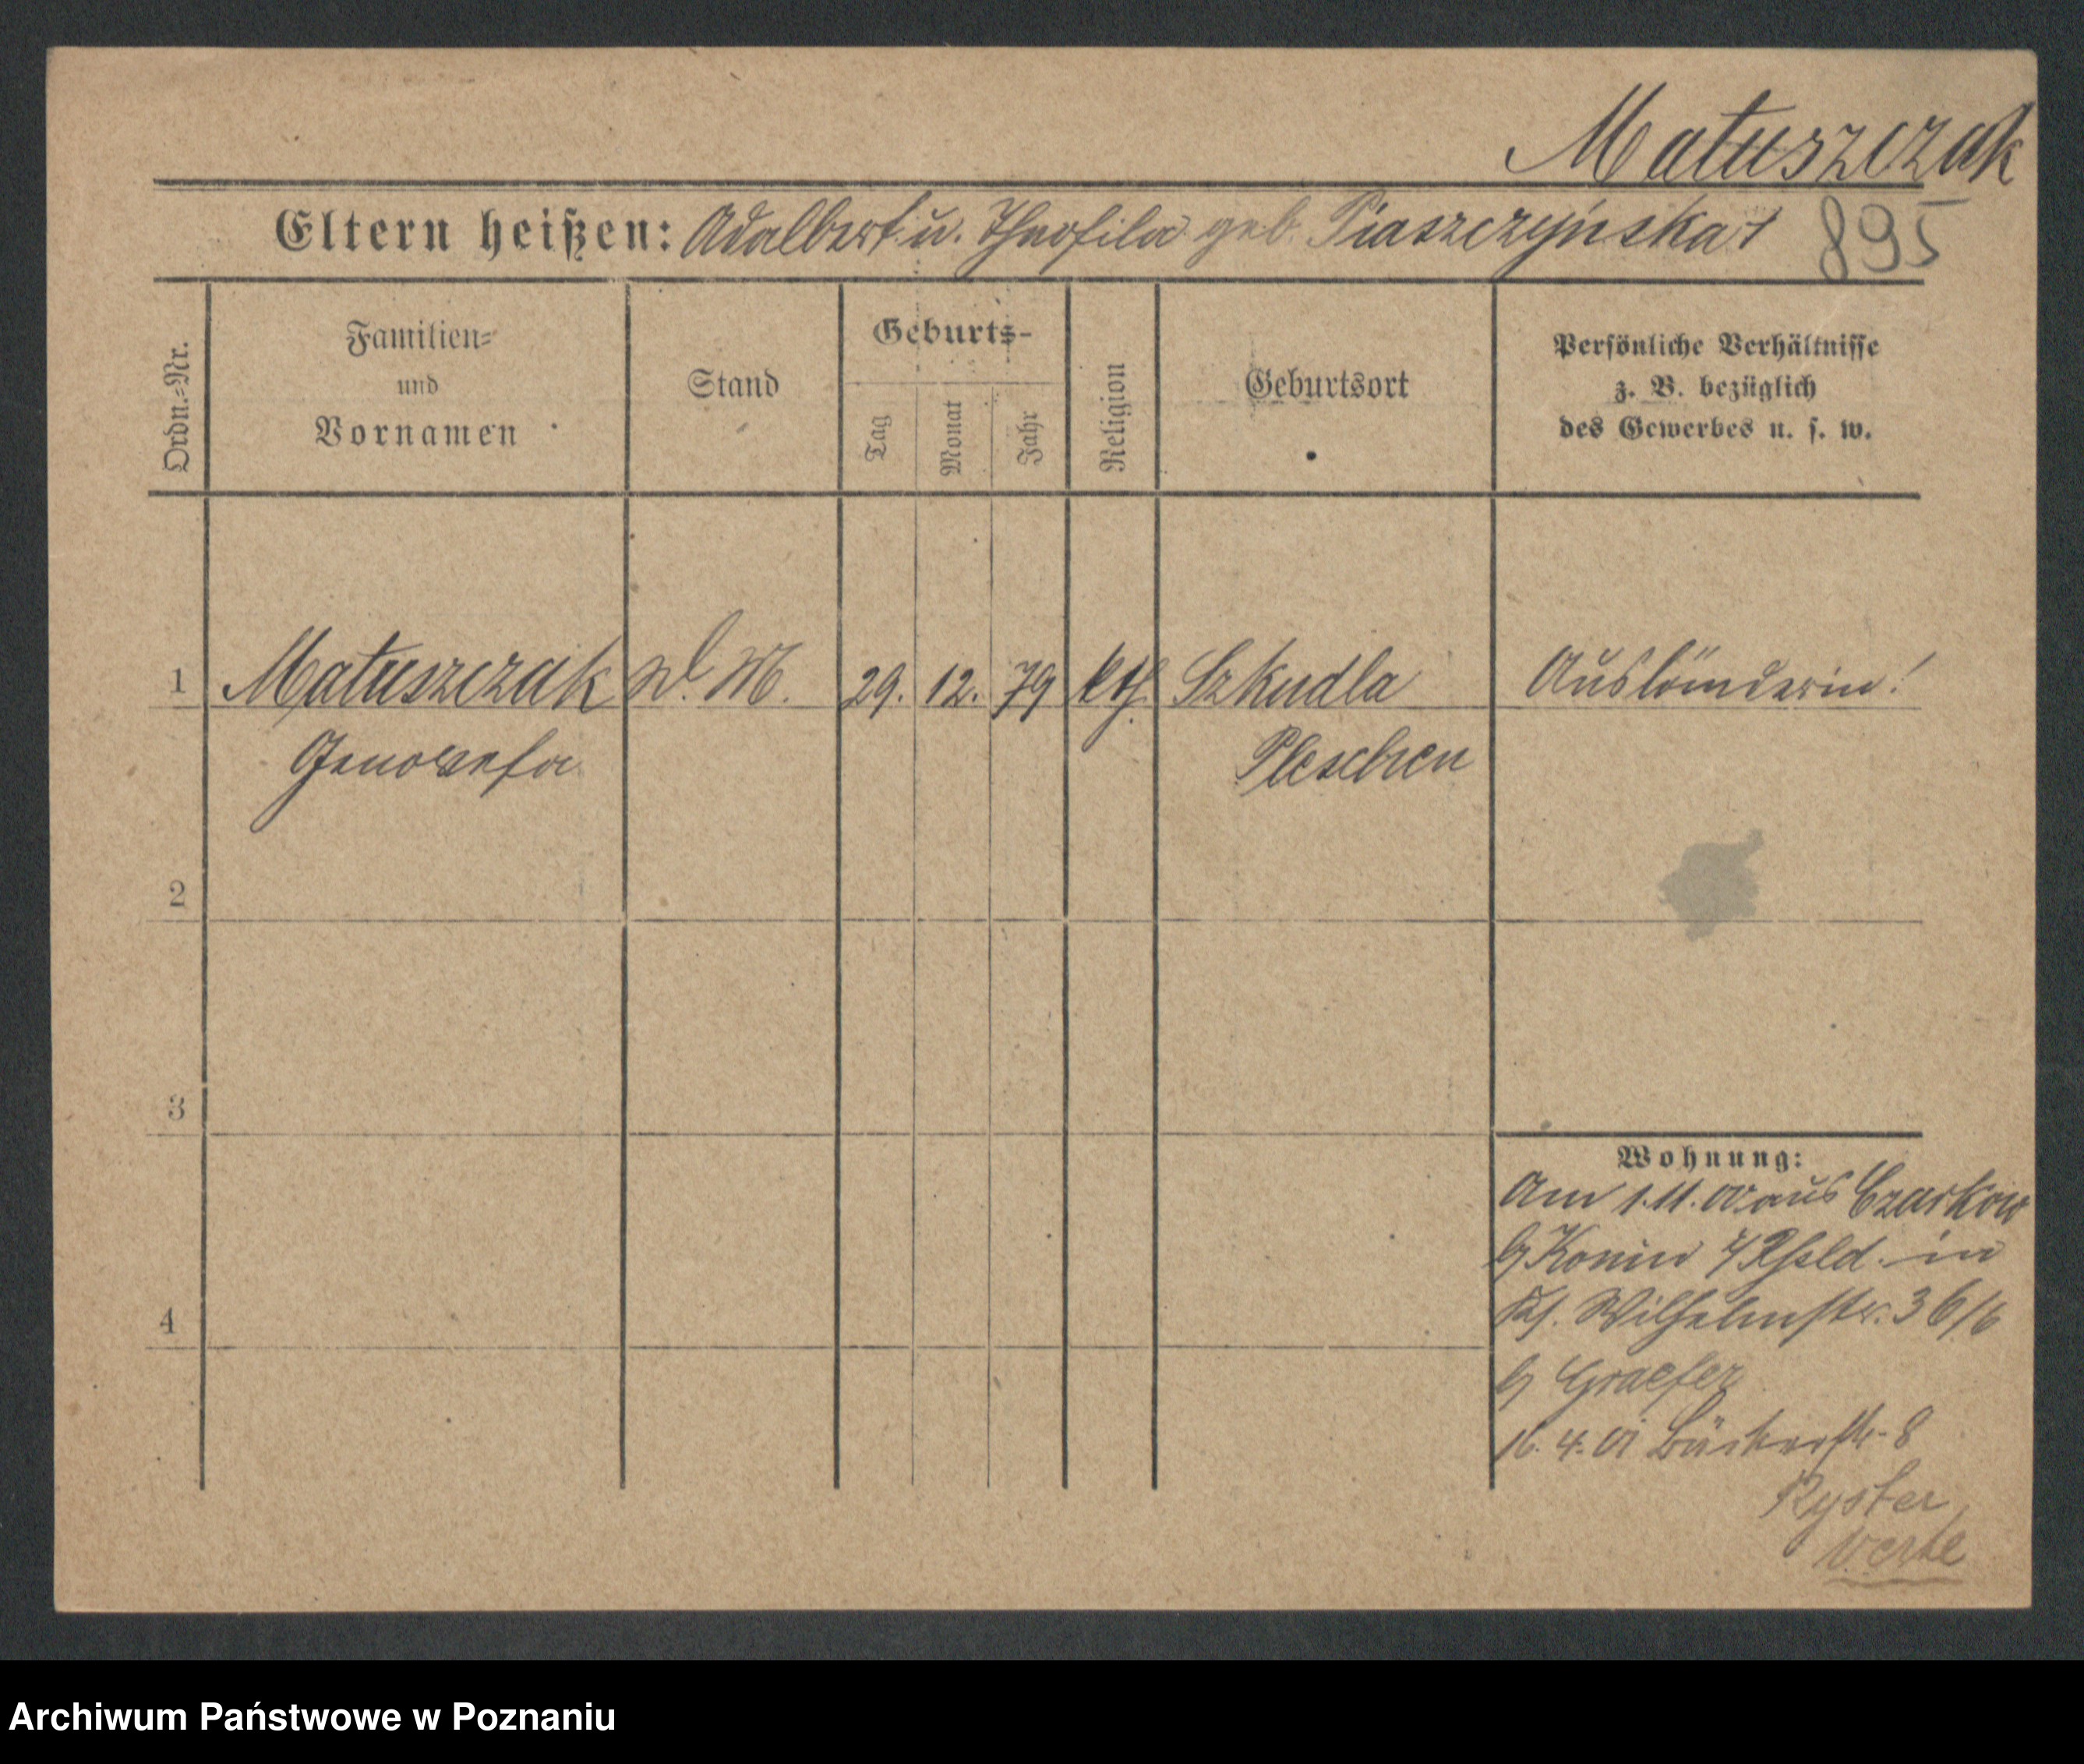 Matuszczak
Eltern heißen: Adalbert u. Theofila geb. Piaszczyńska †
895
Ordn.=Nr.
Familien=
und
Vornamen
Stand
Geburts-
Tag
Monat
Jahr
Religion
Geburtsort
Persönliche Verhältnisse
z. B. bezüglich
des Gewerbes u. s. w.
1 Matuszczak d. M. 29. 12. 79 kth. Szkudla Ausländerin!
Genowefa Pleschen
2
3
4
Wohnung:
Am 1.11.00 aus Czarkow
b/ Konin Rssld. in
Wilhelmstr. 36/6
b/ Graefer
16. 4. 01 Bäckerstr. 8
Ryster
Archiwum Państwowe w Poznaniu